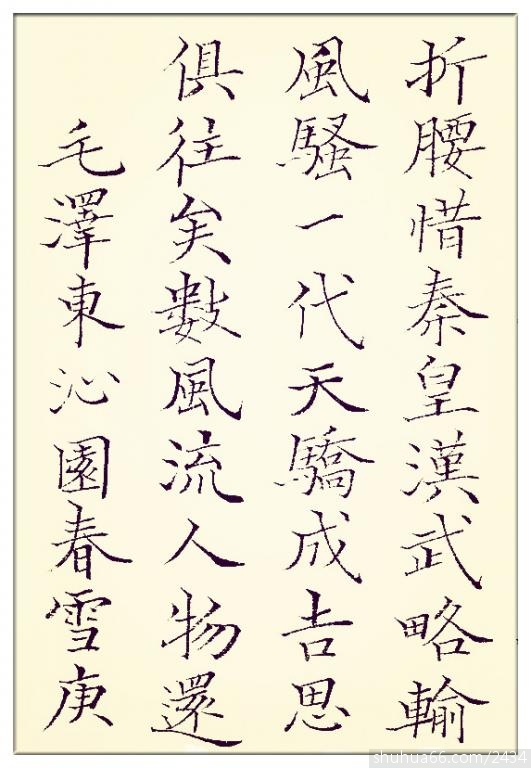 折腰惜秦皇漢武略輸
風騷一代天驕成吉思
俱往矣數風流人物還
毛澤東沁園春雪庚
shuhua66.com/2434